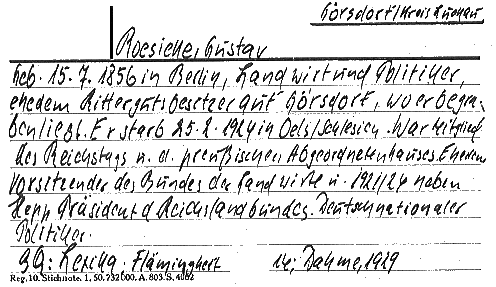 Görsdorf/Kreis Luckau
Roesicke, Gustav
Geb. 15.7.1856 in Berlin, Landwirt und Politiker,
ehedem Rittergutsbesitzer auf Görsdorf, wo er begra-
ben liegt. Er starb 25.2.1924 in Oels/Schlesien. War Mitglied
des Reichstags u. d. preußischen Abgeordnetenhauses. Ehedem
Vorsitzender des Bundes der Landwirte u. 1921/24 neben
Hepp Präsident d Reichslandbundes. Deutschnationaler
Politiker.
BQ: Lexika. Fläminghert 14; Dahme, 1929
Reg. 10. Stichnote. 1, 50. 732 000. A. 803. S. 4062